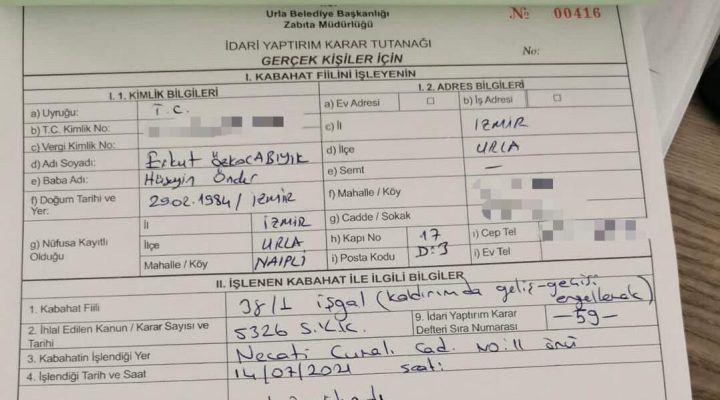 Urla Belediye Başkanlığı
Zabıta Müdürlüğü
№ 00416
İDARİ YAPTIRIM KARAR TUTANAĞI
GERÇEK KİŞİLER İÇİN
No:
I. KABAHAT FİİLİNİ İŞLEYENİN
I. 1. KİMLİK BİLGİLERİ
I. 2. ADRES BİLGİLERİ
a) Uyruğu: T.C.
a) Ev Adresi
b) İş Adresi
b) T.C. Kimlik No:
c) İl İZMİR
c) Vergi Kimlik No:
d) İlçe URLA
d) Adı Soyadı: Erkut ÖzkocABIYIK
e) Semt —
e) Baba Adı: Hüseyin Önder
f) Mahalle / Köy
f) Doğum Tarihi ve Yer: 29.02.1984 / İZMİR
g) Cadde / Sokak
g) Nüfusa Kayıtlı Olduğu
İl İZMİR
h) Kapı No 17
ı) Cep Tel
İlçe URLA
i) Posta Kodu D:3
i) Ev Tel
Mahalle / Köy NAİPLİ
II. İŞLENEN KABAHAT İLE İLGİLİ BİLGİLER
1. Kabahat Fiili 38/1 işgal (kaldırımda geliş-geçişi engellemek)
2. İhlal Edilen Kanun / Karar Sayısı ve Tarihi 5326 S.K.K.
9. İdari Yaptırım Karar Defteri Sıra Numarası —59—
3. Kabahatin İşlendiği Yer Necati Cumalı Cad. No:11 önü
4. İşlendiği Tarih ve Saat 14/07/2021 saati: